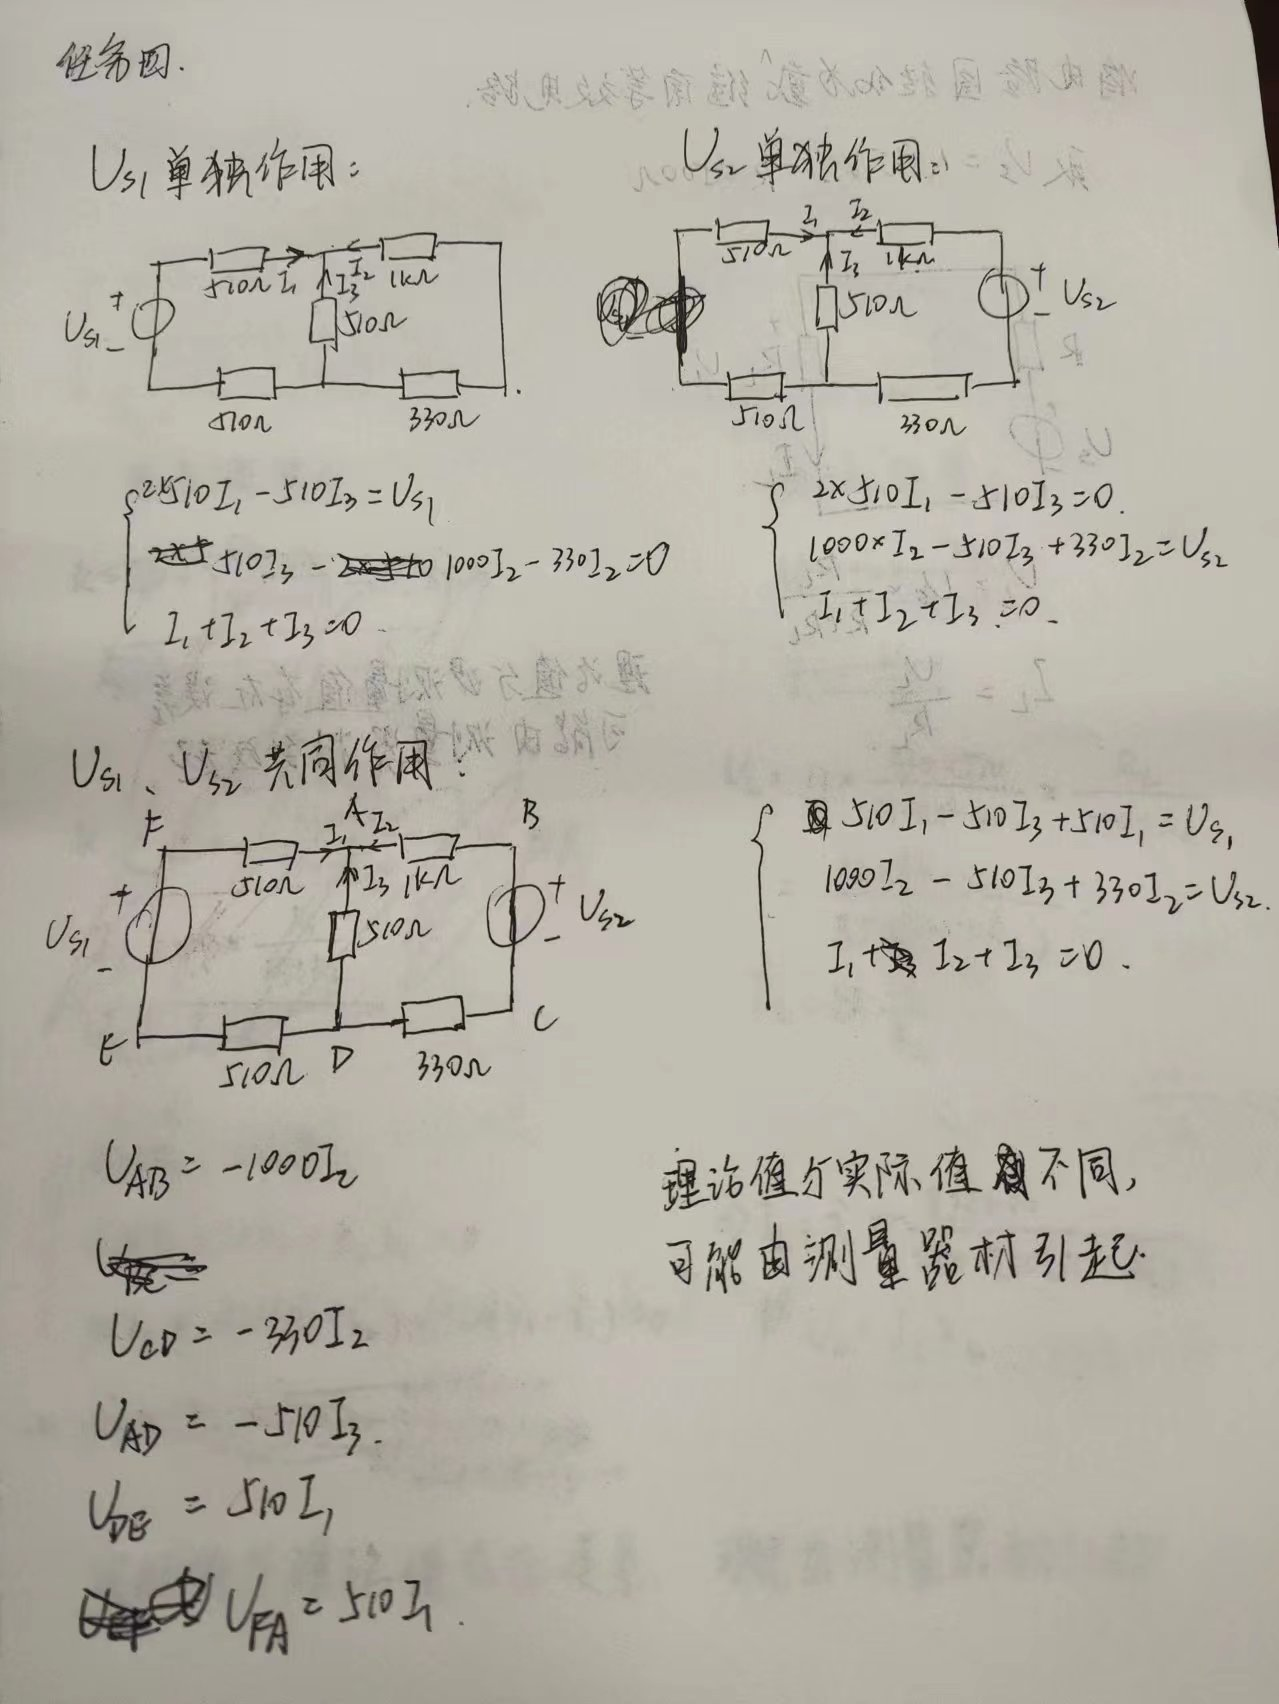 任务四.
US1 单独作用:
510Ω I1 I2 1kΩ
I3
US1 + - 510Ω
510Ω 330Ω
2×510I1-510I3=US1
510I3-1000I2-330I2=0
I1+I2+I3=0.
US2 单独作用:
I1 I2
510Ω I3 1kΩ
510Ω + - US2
510Ω 330Ω
2×510I1-510I3=0.
1000×I2-510I3+330I2=US2
I1+I2+I3=0.
US1、US2 共同作用:
F I1 A I2 B
510Ω I3 1kΩ
US1 + - 510Ω + - US2
E 510Ω D 330Ω C
510I1-510I3+510I1=US1
1000I2-510I3+330I2=US2.
I1+I2+I3=0.
UAB=-1000I2
UCD=-330I2
UAD=-510I3.
UDE=510I1
UFA=510I1.
理论值与实际值不同,
可能由测量器材引起.